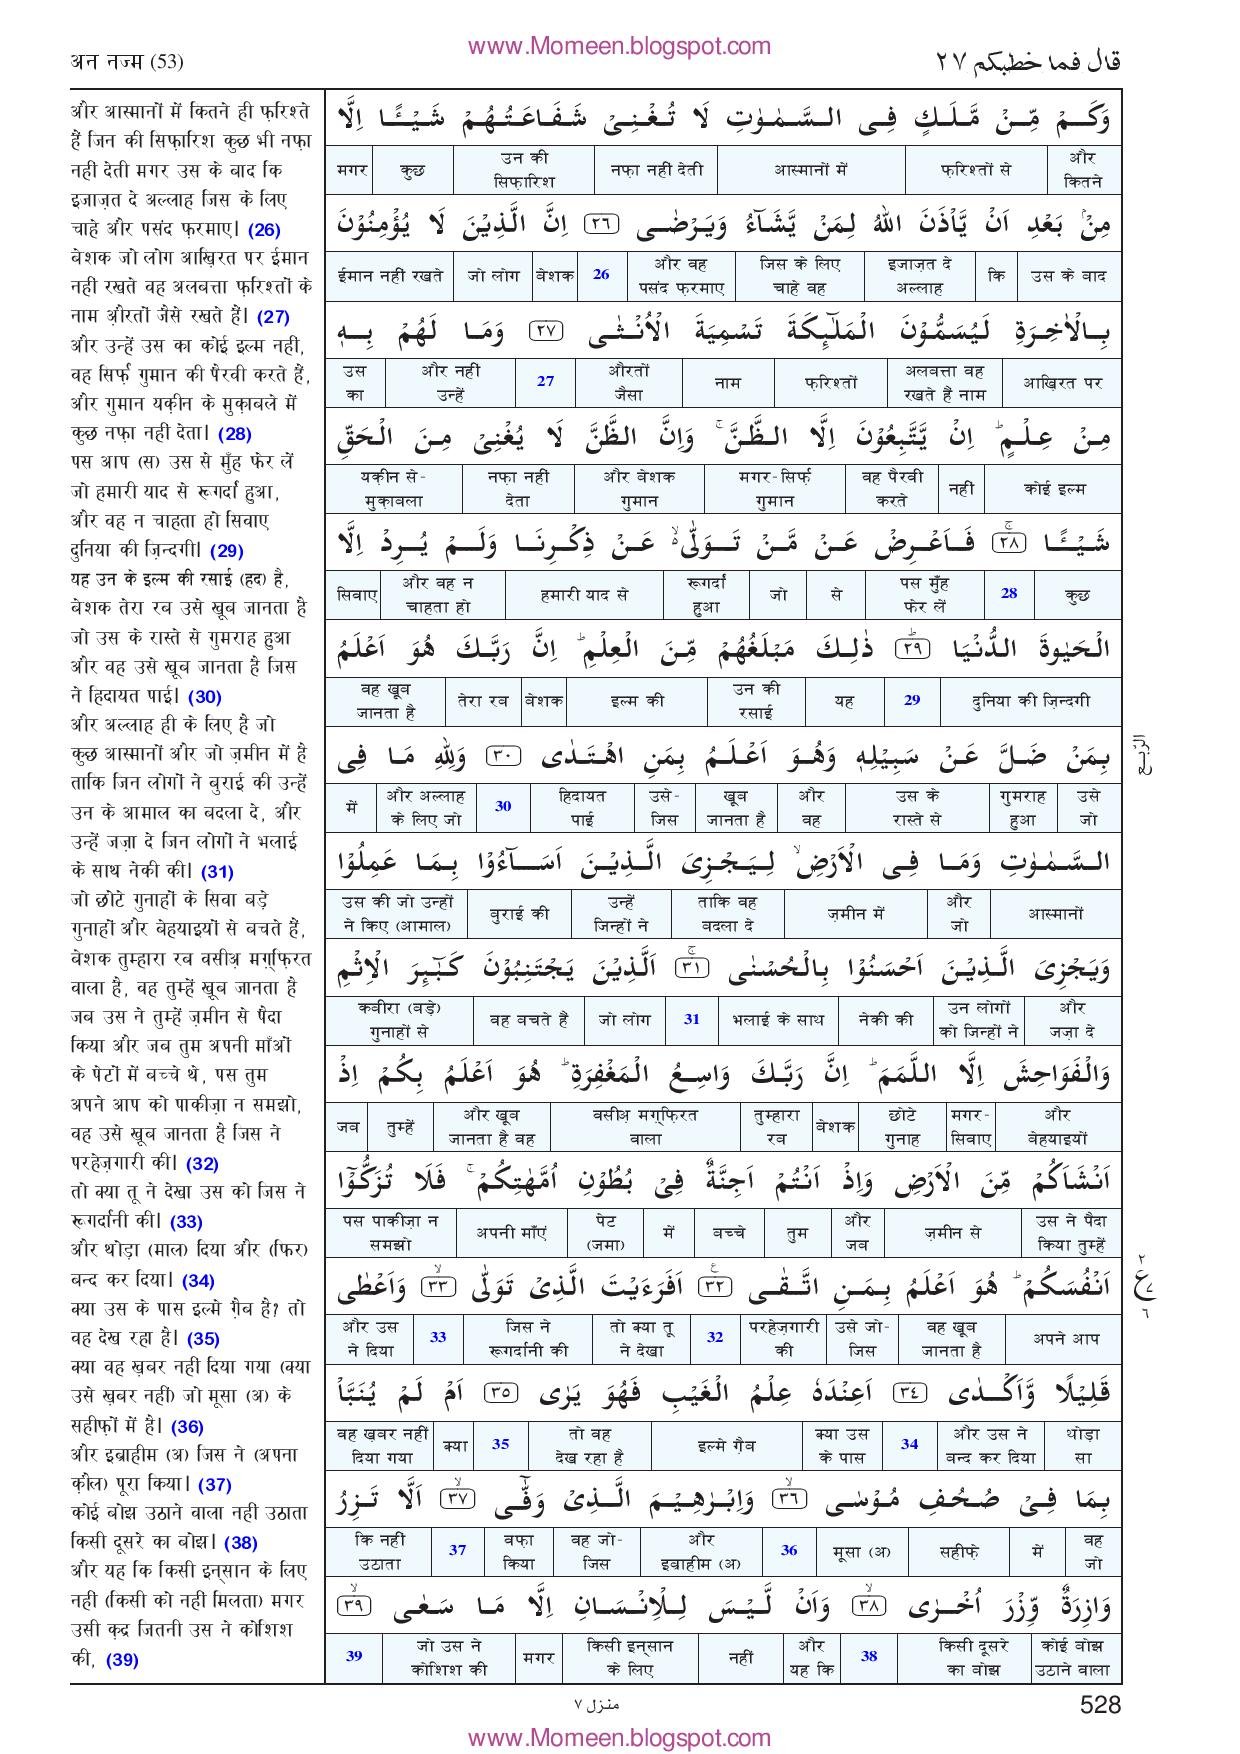 www.Momeen.blogspot.com
अन नज्म (53)
قال فما خطبكم ٢٧
और आस्मानों में कितने ही फ़रिश्ते
हैं जिन की सिफ़ारिश कुछ भी नफ़ा
नहीं देती मगर उस के बाद कि
इजाज़त दे अल्लाह जिस के लिए
चाहे और पसंद फ़रमाए। (26)
बेशक जो लोग आख़िरत पर ईमान
नहीं रखते वह अलबत्ता फ़रिश्तों के
नाम औ़रतों जैसे रखते हैं। (27)
और उन्हें उस का कोई इल्म नहीं,
वह सिर्फ़ गुमान की पैरवी करते हैं,
और गुमान यक़ीन के मुक़ाबले में
कुछ नफ़ा नहीं देता। (28)
पस आप (स) उस से मुँह फेर लें
जो हमारी याद से रूगर्दां हुआ,
और वह न चाहता हो सिवाए
दुनिया की ज़िन्दगी। (29)
यह उन के इल्म की रसाई (हद) है,
बेशक तेरा रब उसे खूब जानता है
जो उस के रास्ते से गुमराह हुआ
और वह उसे खूब जानता है जिस
ने हिदायत पाई। (30)
और अल्लाह ही के लिए है जो
कुछ आस्मानों और जो ज़मीन में है
ताकि जिन लोगों ने बुराई की उन्हें
उन के आमाल का बदला दे, और
उन्हें जज़ा दे जिन लोगों ने भलाई
के साथ नेकी की। (31)
जो छोटे गुनाहों के सिवा बड़े
गुनाहों और बेहयाइयों से बचते हैं,
बेशक तुम्हारा रब वसीअ़ मग़्फ़िरत
वाला है, वह तुम्हें खूब जानता है
जब उस ने तुम्हें ज़मीन से पैदा
किया और जब तुम अपनी माँओं
के पेटों में बच्चे थे, पस तुम
अपने आप को पाकीज़ा न समझो,
वह उसे खूब जानता है जिस ने
परहेज़गारी की। (32)
तो क्या तू ने देखा उस को जिस ने
रूगर्दानी की। (33)
और थोड़ा (माल) दिया और (फिर)
बन्द कर दिया। (34)
क्या उस के पास इल्मे ग़ैब है? तो
वह देख रहा है। (35)
क्या वह ख़बर नहीं दिया गया (क्या
उसे ख़बर नहीं) जो मूसा (अ) के
सहीफ़ों में है। (36)
और इब्राहीम (अ) जिस ने (अपना
क़ौल) पूरा किया। (37)
कोई बोझ उठाने वाला नहीं उठाता
किसी दूसरे का बोझ। (38)
और यह कि किसी इन्सान के लिए
नहीं (किसी को नहीं मिलता) मगर
उसी क़द्र जितनी उस ने कोशिश
की, (39)
وَكَمْ مِّنْ مَّلَكٍ فِى السَّمٰوٰتِ لَا تُغْنِىْ شَفَاعَتُهُمْ شَيْـًٔا اِلَّا
और कितने फ़रिश्तों से आस्मानों में नफ़ा नहीं देती उन की सिफ़ारिश कुछ मगर
مِنْۢ بَعْدِ اَنْ يَّاْذَنَ اللّٰهُ لِمَنْ يَّشَآءُ وَيَرْضٰى ٢٦ اِنَّ الَّذِيْنَ لَا يُؤْمِنُوْنَ
उस के बाद कि इजाज़त दे अल्लाह जिस के लिए चाहे वह और वह पसंद फ़रमाए 26 बेशक जो लोग ईमान नहीं रखते
بِالْاٰخِرَةِ لَيُسَمُّوْنَ الْمَلٰٓئِكَةَ تَسْمِيَةَ الْاُنْثٰى ٢٧ وَمَا لَهُمْ بِهٖ
आख़िरत पर अलबत्ता वह रखते हैं नाम फ़रिश्तों नाम औ़रतों जैसा 27 और नहीं उन्हें उस का
مِنْ عِلْمٍ ؕ اِنْ يَّتَّبِعُوْنَ اِلَّا الظَّنَّ ۚ وَاِنَّ الظَّنَّ لَا يُغْنِىْ مِنَ الْحَقِّ
कोई इल्म नहीं वह पैरवी करते मगर-सिर्फ़ गुमान और बेशक गुमान नफ़ा नहीं देता यक़ीन से-मुक़ाबला
شَيْـًٔا ۚ ٢٨ فَاَعْرِضْ عَنْ مَّنْ تَوَلّٰى ۙ۬ عَنْ ذِكْرِنَا وَلَمْ يُرِدْ اِلَّا
कुछ 28 पस मुँह फेर लें से जो रूगर्दां हुआ हमारी याद से और वह न चाहता हो सिवाए
الْحَيٰوةَ الدُّنْيَا ؕ ٢٩ ذٰلِكَ مَبْلَغُهُمْ مِّنَ الْعِلْمِ ؕ اِنَّ رَبَّكَ هُوَ اَعْلَمُ
दुनिया की ज़िन्दगी 29 यह उन की रसाई इल्म की बेशक तेरा रब वह खूब जानता है
بِمَنْ ضَلَّ عَنْ سَبِيْلِهٖ وَهُوَ اَعْلَمُ بِمَنِ اهْتَدٰى ٣٠ وَلِلّٰهِ مَا فِى
उसे जो गुमराह हुआ उस के रास्ते से और वह खूब जानता है उसे-जिस हिदायत पाई 30 और अल्लाह के लिए जो में
السَّمٰوٰتِ وَمَا فِى الْاَرْضِ ۙ لِيَجْزِىَ الَّذِيْنَ اَسَآءُوْا بِمَا عَمِلُوْا
आस्मानों और जो ज़मीन में ताकि वह बदला दे उन्हें जिन्हों ने बुराई की उस की जो उन्हों ने किए (आमाल)
وَيَجْزِىَ الَّذِيْنَ اَحْسَنُوْا بِالْحُسْنٰى ۚ ٣١ اَلَّذِيْنَ يَجْتَنِبُوْنَ كَبٰٓئِرَ الْاِثْمِ
और जज़ा दे उन लोगों को जिन्हों ने नेकी की भलाई के साथ 31 जो लोग वह बचते है कबीरा (बड़े) गुनाहों से
وَالْفَوَاحِشَ اِلَّا اللَّمَمَ ؕ اِنَّ رَبَّكَ وَاسِعُ الْمَغْفِرَةِ ؕ هُوَ اَعْلَمُ بِكُمْ اِذْ
और बेहयाइयों मगर-सिवाए छोटे गुनाह बेशक तुम्हारा रब वसीअ़ मग़्फ़िरत वाला और खूब जानता है वह तुम्हें जब
اَنْشَاَكُمْ مِّنَ الْاَرْضِ وَاِذْ اَنْتُمْ اَجِنَّةٌ فِىْ بُطُوْنِ اُمَّهٰتِكُمْ ۚ فَلَا تُزَكُّوْۤا
उस ने पैदा किया तुम्हें ज़मीन से और जब तुम बच्चे में पेट (जमा) अपनी माँएं पस पाकीज़ा न समझो
اَنْفُسَكُمْ ؕ هُوَ اَعْلَمُ بِمَنِ اتَّقٰى ۧ ٣٢ اَفَرَءَيْتَ الَّذِىْ تَوَلّٰى ۙ ٣٣ وَاَعْطٰى
अपने आप वह खूब जानता है उसे जो-जिस परहेज़गारी की 32 तो क्या तू ने देखा जिस ने रूगर्दानी की 33 और उस ने दिया
قَلِيْلًا وَّاَكْدٰى ٣٤ اَعِنْدَهٗ عِلْمُ الْغَيْبِ فَهُوَ يَرٰى ٣٥ اَمْ لَمْ يُنَبَّاْ
थोड़ा सा और उस ने बन्द कर दिया 34 क्या उस के पास इल्मे ग़ैब तो वह देख रहा है 35 क्या वह ख़बर नहीं दिया गया
بِمَا فِىْ صُحُفِ مُوْسٰى ۙ ٣٦ وَاِبْرٰهِيْمَ الَّذِىْ وَفّٰٓى ۙ ٣٧ اَلَّا تَزِرُ
वह जो में सहीफ़े मूसा (अ) 36 और इब्राहीम (अ) वह जो-जिस वफ़ा किया 37 कि नहीं उठाता
وَازِرَةٌ وِّزْرَ اُخْرٰى ۙ ٣٨ وَاَنْ لَّيْسَ لِلْاِنْسَانِ اِلَّا مَا سَعٰى ۙ ٣٩
कोई बोझ उठाने वाला किसी दूसरे का बोझ 38 और यह कि नहीं किसी इन्सान के लिए मगर जो उस ने कोशिश की 39
الربع
٢
ع
٧
٦
منزل ٧
528
www.Momeen.blogspot.com